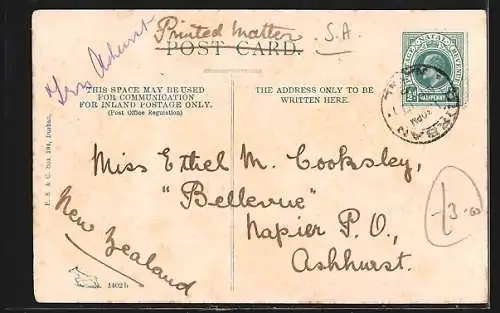 Printed Matter
S.A
POST CARD.
Ashurst
THIS SPACE MAY BE USED
FOR COMMUNICATION
FOR INLAND POSTAGE ONLY.
(Post Office Regulation)
THE ADDRESS ONLY TO BE
WRITTEN HERE.
NATAL
REVENUE
HALFPENNY
DURBAN
Miss Ethel M. Cooksley,
"Bellevue"
Napier P.O.,
Ashhurst.
New Zealand
Box 198, Durban.
1402b